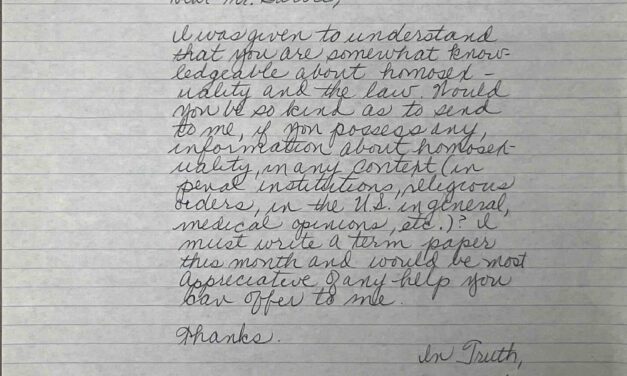 Dear Mr.
I was given to understand
that you are somewhat know-
ledgeable about homosex-
uality and the law. Would
you be so kind as to send
to me, if you possess any,
information about homosex-
uality, in any context (in
penal institutions, religious
orders, in the U.S. in general,
medical opinions, etc.)? I
must write a term paper
this month and would be most
appreciative of any help you
can offer to me.
Thanks.
In Truth,